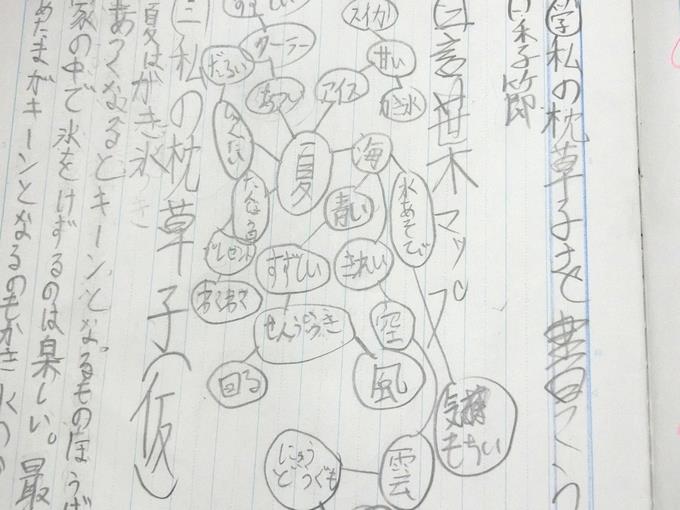 学 私の枕草子を書こう
季節
言葉マップ
スイカ
甘い
かき氷
アイス
クーラー
あつい
だるい
夏
海
水あそび
青い
きれい
すずしい
プレゼント
わくわく
せんぷうき
空
風
回る
気持
もちいい
雲
にゅう
どうぐも
私の枕草子(仮)
夏はかき氷
あつくなるとキーンとなるもの
家の中で氷をけずるのは楽しい。最
あたまがキーンとなるのもかき氷の